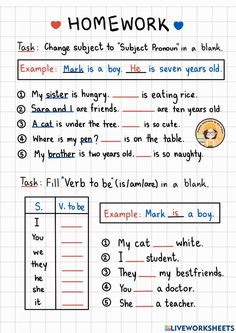 HOMEWORK
Task: Change subject to "Subject Pronoun" in a blank.
Example: Mark is a boy. He is seven years old.
① My sister is hungry. ____ is eating rice.
② Sara and I are friends. ____ are ten years old.
③ A cat is under the tree. ____ is so cute.
④ Where is my pen? ____ is on the table.
⑤ My brother is two years old. ____ is so naughty.
Task: Fill "Verb to be" (is/am/are) in a blank.
S. V. to be
I ____
You ____
we ____
they ____
he ____
she ____
it ____
Example: Mark is a boy.
① My cat ____ white.
② I ____ student.
③ They ____ my bestfriends.
④ You ____ a doctor.
⑤ She ____ a teacher.
LIVEWORKSHEETS